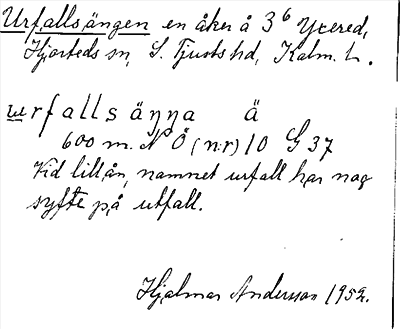 Urfallsängen en åker å 3⁶ Yxered,
Hjorteds sn, S. Tjusts hd, Kalm. L.
urfallsäŋŋa ä
600 m. N Ö (nr) 10 G 37
Vid lillån, namnet urfall har nog
syfte på utfall.
Hjalmar Andersson 1952.